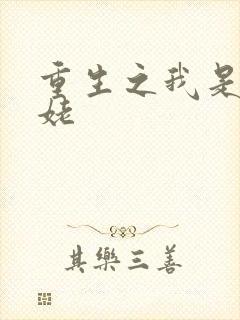 重生之我是
姥
其樂三善